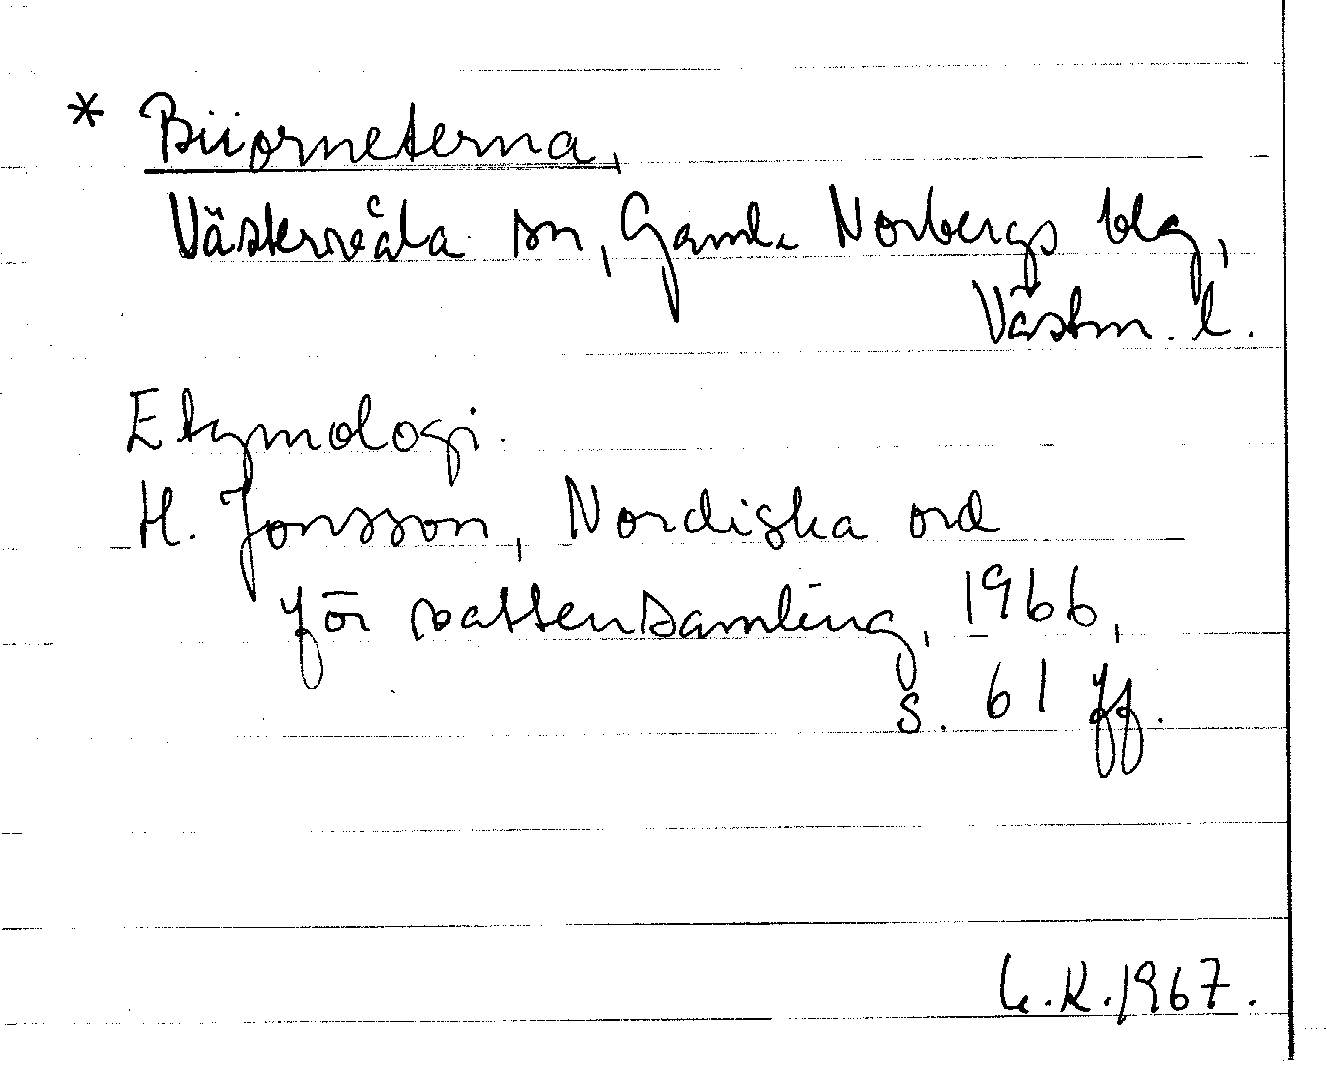 * Biiorneterna,
Västervåla sn, Gamla Norbergs blg,
Västm. l.
Etymologi.
H. Jonsson, Nordiska ord
för vattensamling, 1966,
s. 61 ff.
K.R. 1967.